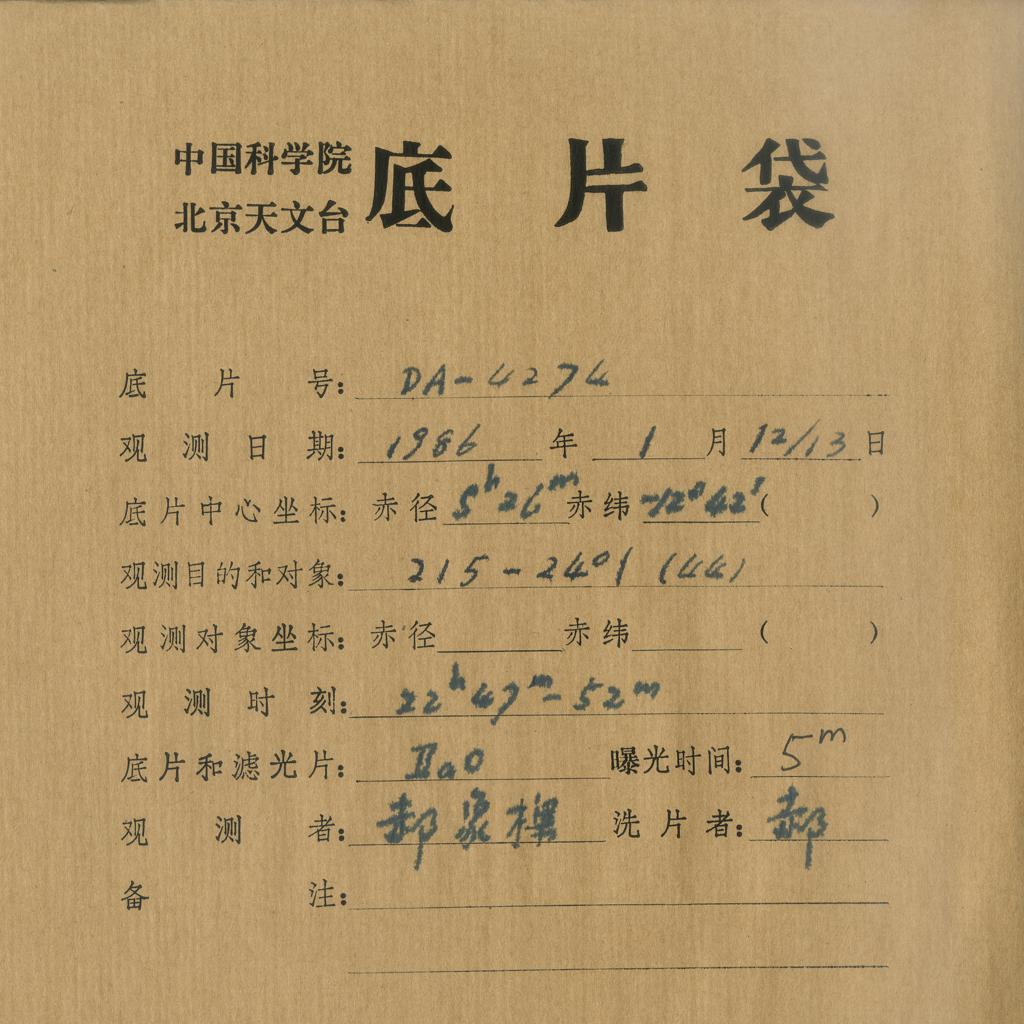 中国科学院
北京天文台
底片袋
底片号: DA-4274
观测日期: 1986年 1月 12/13日
底片中心坐标: 赤径 5h26m 赤纬 -12°42′( )
观测目的和对象: 215-2401 (44)
观测对象坐标: 赤径 赤纬 ( )
观测时刻: 22h47m-52m
底片和滤光片: IIaO 曝光时间: 5m
观测者: 郝象樑 洗片者: 郝
备注: